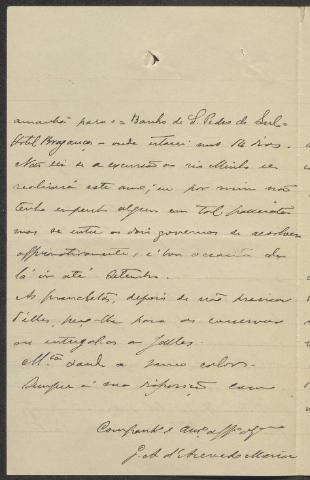 amanhã para o = Banho de S. Pedro do Sul =
Hotel Bragança - onde estarei uns 14 dias.
Não sei se a excursão ao rio Minho se
realisará este anno, eu por mim não
tenho empenho algum em tal
mas se entre os dois governos se resolver
affirmativamente, é boa occasião de
lá ir até Setembro.
As pranchetas, depois de não precisar
d'ellas, peço-lhe para as conservar
ou entregal-as a
M.ta saude a
Sempre á sua disposição como
am.º
J. A. d'Azevedo Maria